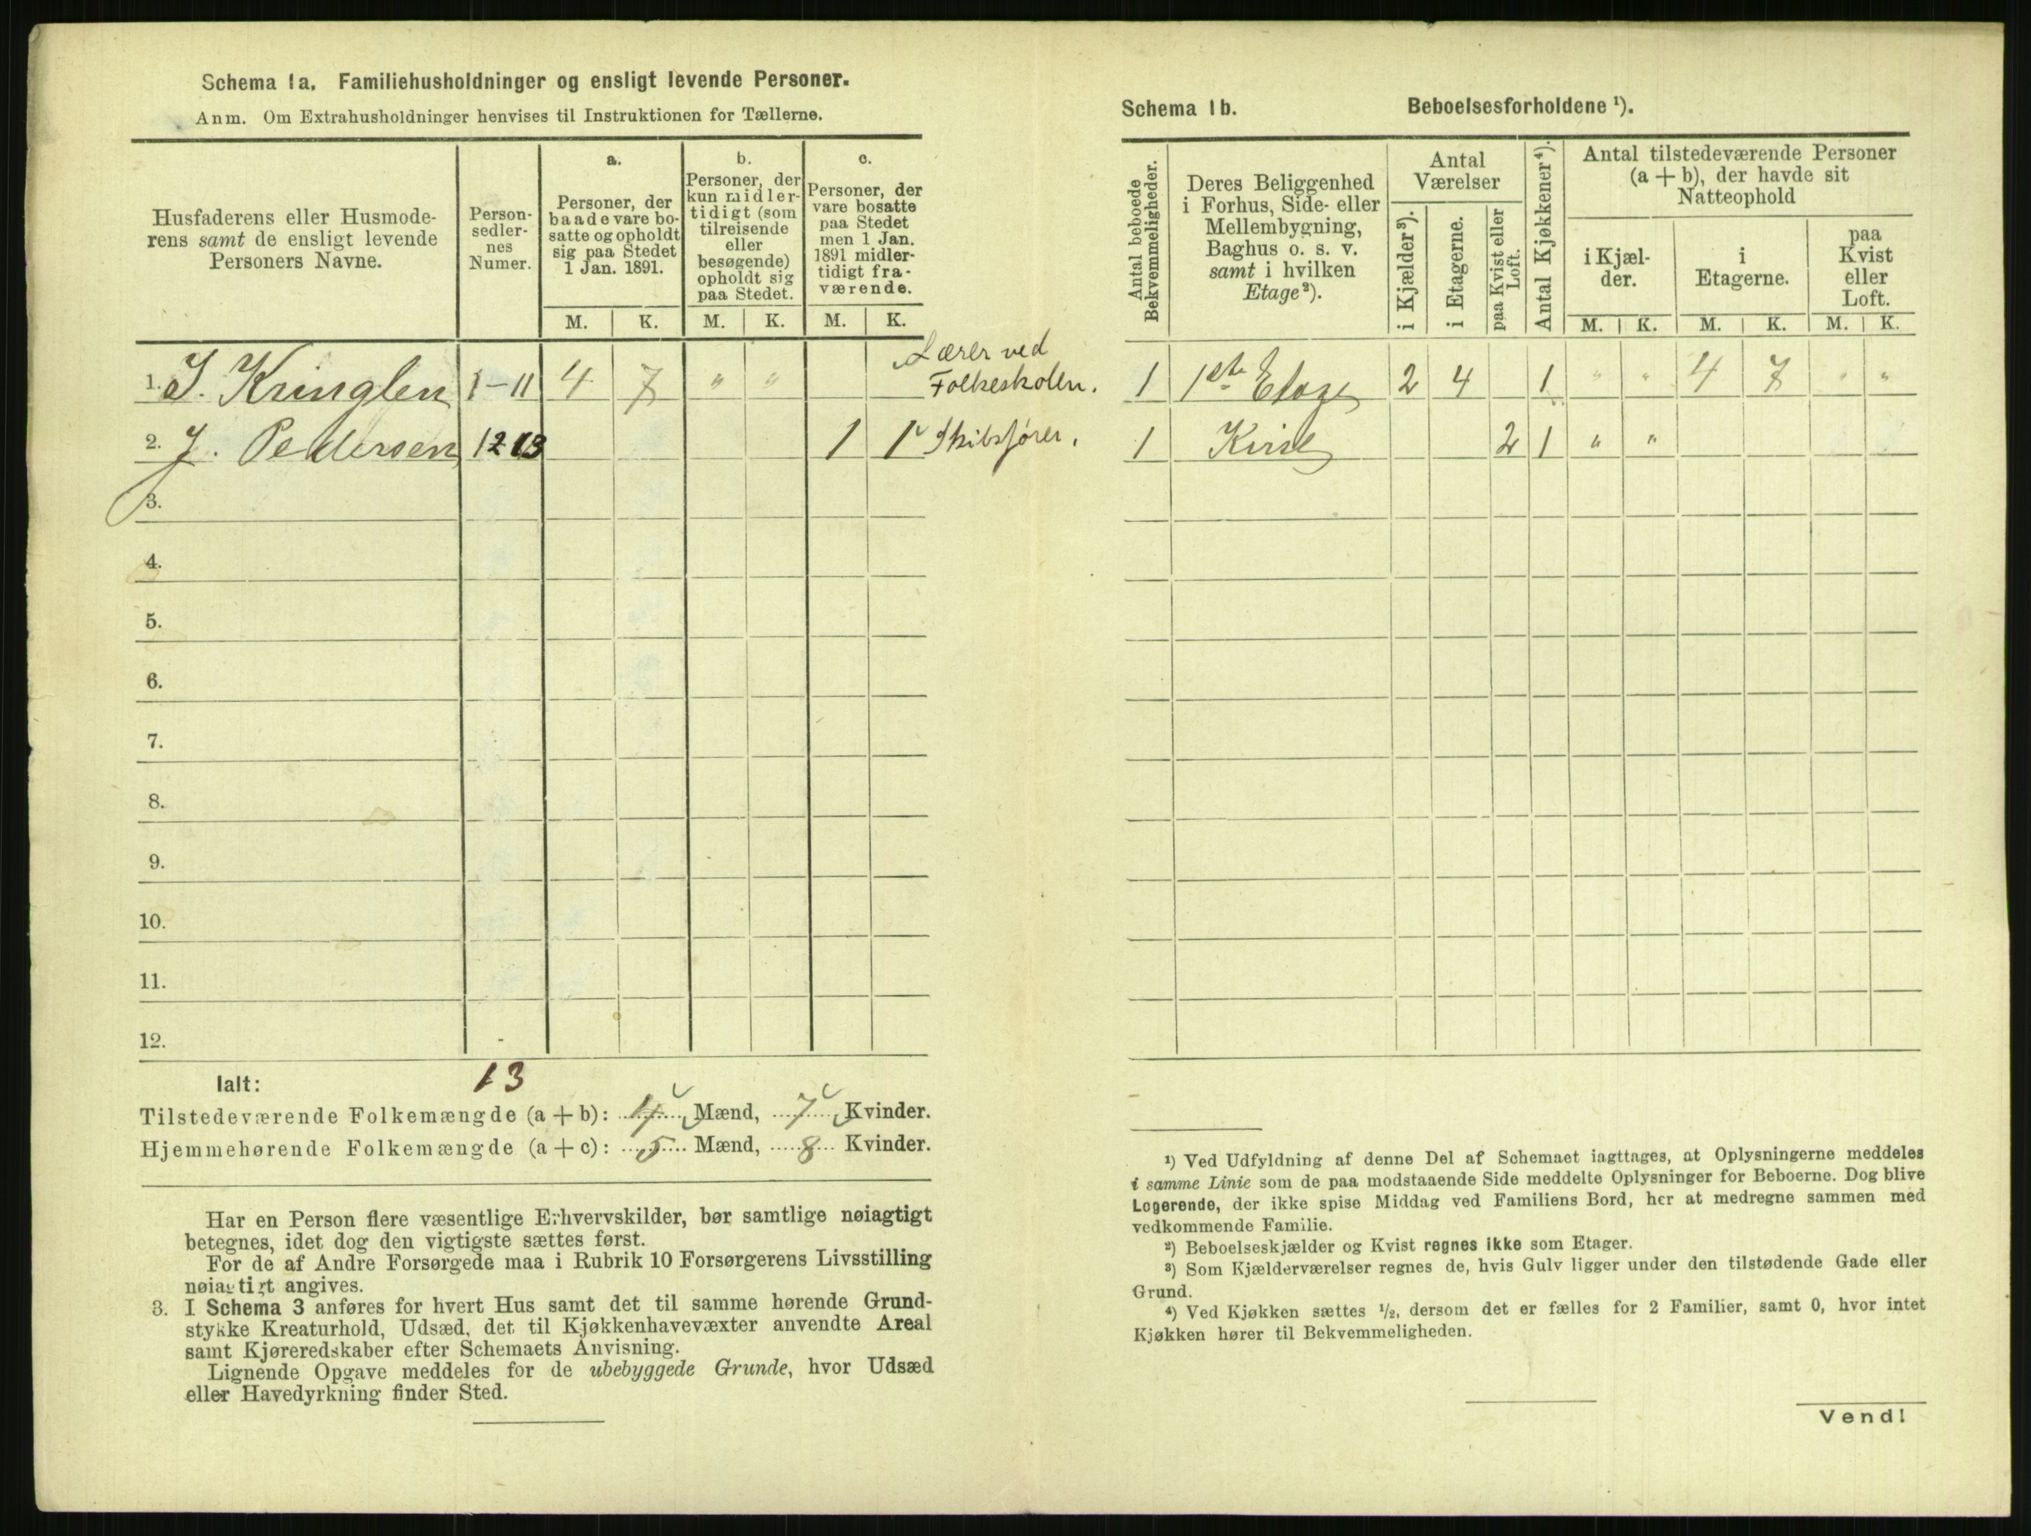 Schema 1a. Familiehusholdninger og ensligt levende Personer.
Anm. Om Extrahusholdninger henvises til Instruktionen for Tællerne.
Husfaderens eller Husmode-
rens samt de ensligt levende
Personers Navne.
Person-
sedler-
nes
Numer.
a.
Personer, der
baade vare bo-
satte og opholdt
sig paa Stedet
1 Jan. 1891.
b.
Personer, der
kun midler-
tidigt (som
tilreisende
eller
besøgende)
opholdt sig
paa Stedet.
c.
Personer, der
vare bosatte
paa Stedet
men 1 Jan.
1891 midler-
tidigt fra-
værende.
M. K. M. K. M. K.
1. J. Kringlen 1-11 4 7 " " Lærer ved
Folkeskolen.
2. J. Pedersen 12 13 1 1 Skibsfører.
3.
4.
5.
6.
7.
8.
9.
10.
11.
12.
Ialt: 13
Tilstedeværende Folkemængde (a + b): 4 Mænd, 7 Kvinder.
Hjemmehørende Folkemængde (a + c): 5 Mænd, 8 Kvinder.
Har en Person flere væsentlige Erhvervskilder, bør samtlige nøiagtigt
betegnes, idet dog den vigtigste sættes først.
For de af Andre Forsørgede maa i Rubrik 10 Forsørgerens Livsstilling
nøiagtigt angives.
3. I Schema 3 anføres for hvert Hus samt det til samme hørende Grund-
stykke Kreaturhold, Udsæd, det til Kjøkkenhavevæxter anvendte Areal
samt Kjøreredskaber efter Schemaets Anvisning.
Lignende Opgave meddeles for de ubebyggede Grunde, hvor Udsæd
eller Havedyrkning finder Sted.
Schema 1b. Beboelsesforholdene ¹).
Antal beboede
Bekvemmeligheder.
Deres Beliggenhed
i Forhus, Side- eller
Mellembygning,
Baghus o. s. v.
samt i hvilken
Etage²).
Antal
Værelser
i Kjælder³).
i Etagerne.
paa Kvist eller
Loft.
Antal Kjøkkener⁴).
Antal tilstedeværende Personer
(a + b), der havde sit
Natteophold
i Kjæl-
der.
i
Etagerne.
paa
Kvist
eller
Loft.
M. K. M. K. M. K.
1 1ste Etage 2 4 1 " " 4 7 " "
1 Kvist 2 1 " "
¹) Ved Udfyldning af denne Del af Schemaet iagttages, at Oplysningerne meddeles
i samme Linie som de paa modstaaende Side meddelte Oplysninger for Beboerne. Dog blive
Logerende, der ikke spise Middag ved Familiens Bord, her at medregne sammen med
vedkommende Familie.
²) Beboelseskjælder og Kvist regnes ikke som Etager.
³) Som Kjælderværelser regnes de, hvis Gulv ligger under den tilstødende Gade eller
Grund.
⁴) Ved Kjøkken sættes ½, dersom det er fælles for 2 Familier, samt 0, hvor intet
Kjøkken hører til Bekvemmeligheden.
Vend!